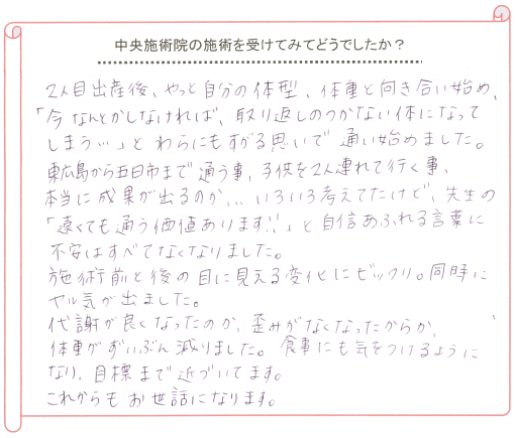 中央施術院の施術を受けてみてどうでしたか？
2人目出産後、やっと自分の体型、体重と向き合い始め、
「今なんとかしなければ、取り返しのつかない体になって
しまう…」とわらにもすがる思いで通い始めました。
東広島から五日市まで通う事、子供を2人連れて行く事、
本当に成果が出るのか…いろいろ考えてたけど、先生の
「遠くても通う価値あります!!」と自信あふれる言葉に
不安はすべてなくなりました。
施術前と後の目に見える変化にビックリ。同時に
ヤル気が出ました。
代謝が良くなったのか、歪みがなくなったからか、
体重がずいぶん減りました。食事にも気をつけるように
なり、目標まで近づいてます。
これからもお世話になります。